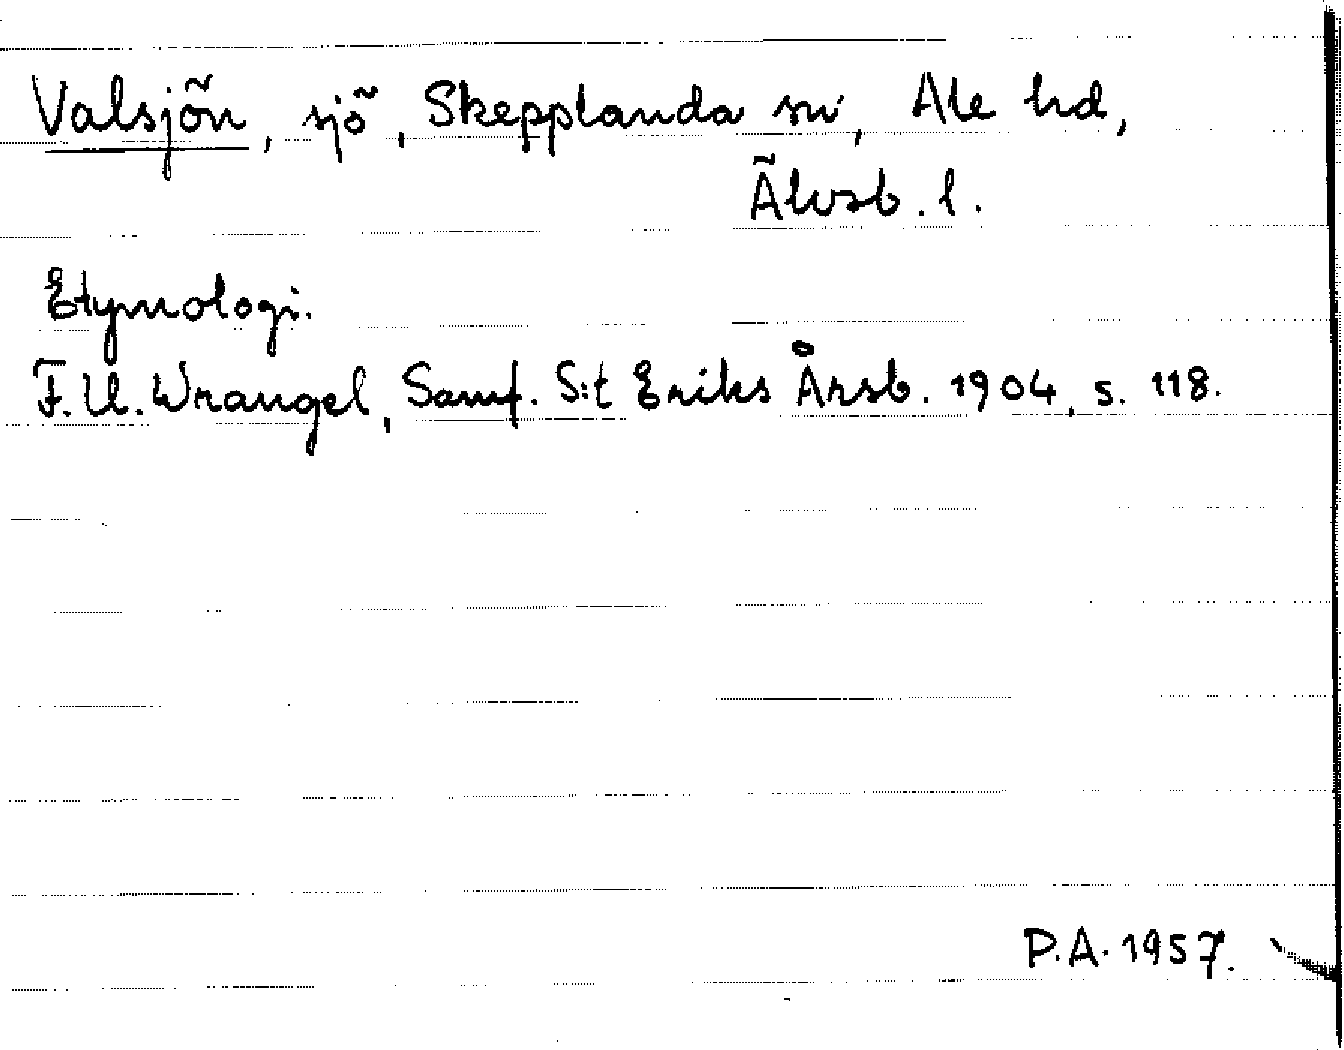 Valsjön, sjö, Skepplanda sn, Ale hd,
Älvsb. l.
Etymologi.
F.U. Wrangel, Samf. S:t Eriks Årsb. 1904, s. 118.
P.A. 1957.